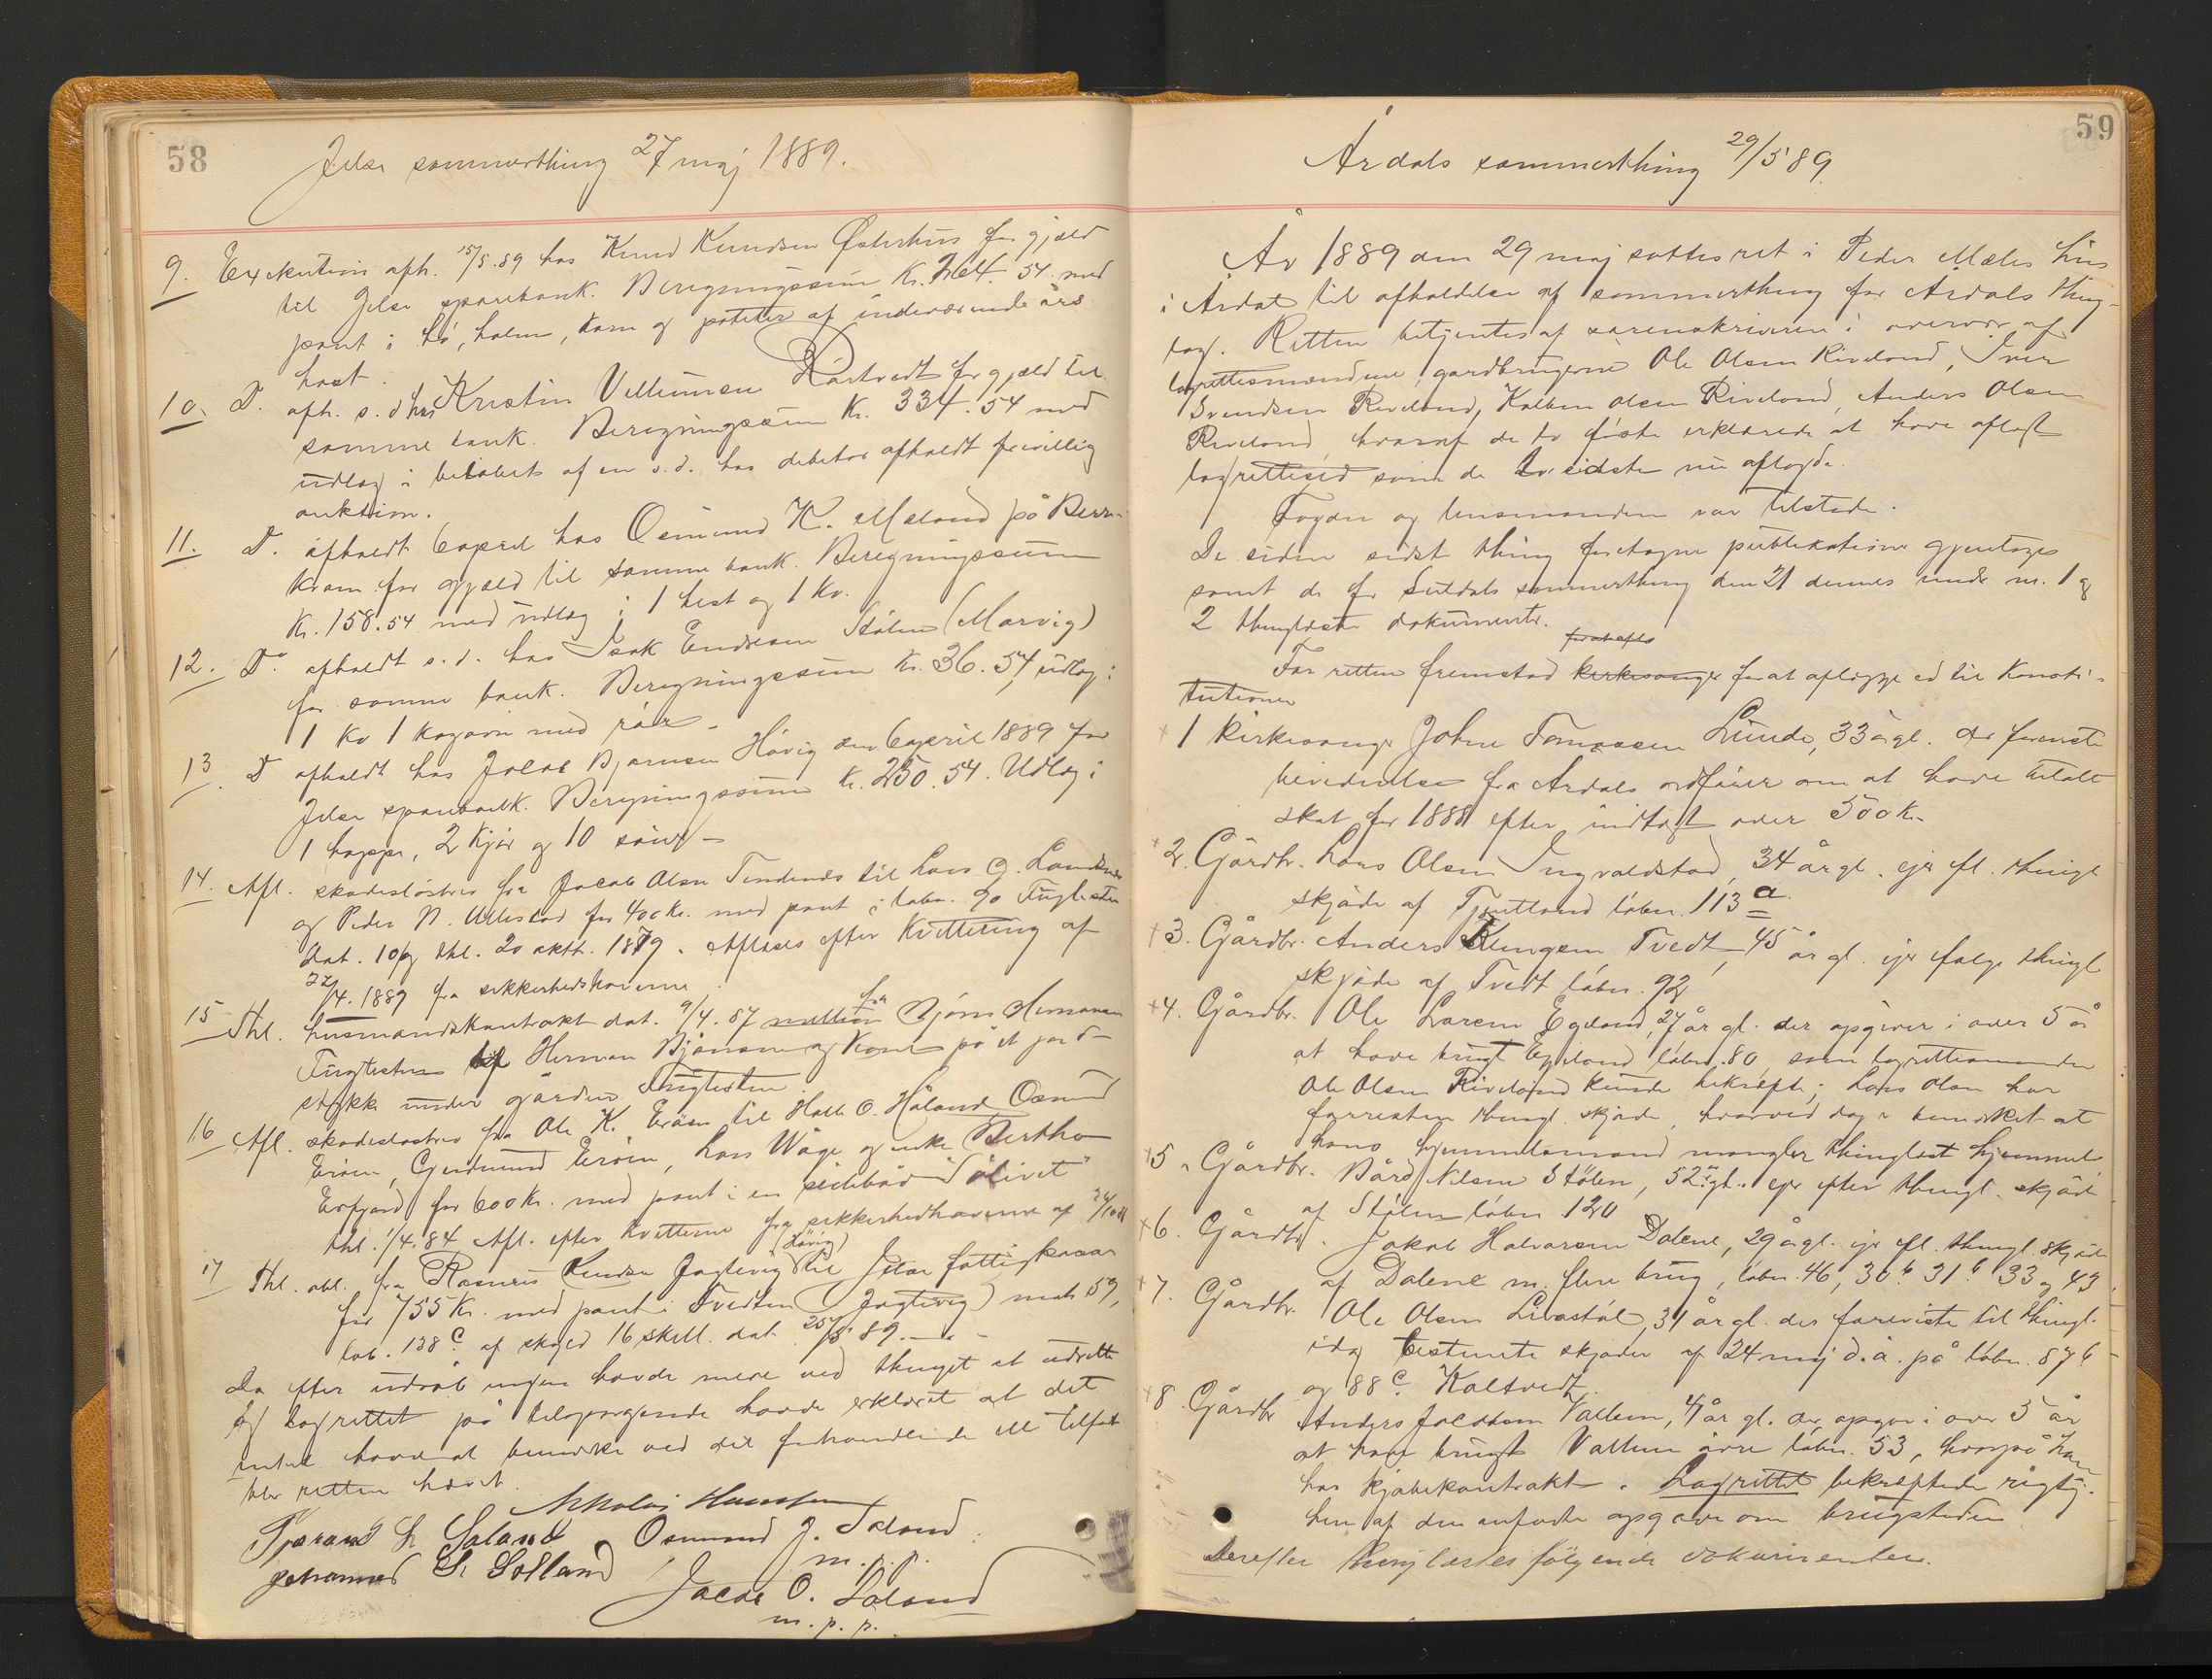 58
Jelse sommerthing 27 maj 1889.
9. Exekution afh. 15/5.89 hos Knud Knudsen Østerhus for gjæld
til Jelse sparebank. Beregningssum Kr. 264.54 med
pant i hö, halm, korn og poteter af indeværende års
høst.
10. Do. afh. s. d. hos Kristin Vellumsen for gjæld til
samme bank. Beregningssum Kr. 334.54 med
udlæg i beløbet af en s. d. hos debitor afholdt frivillig
auktion.
11. Do. afholdt 6 april hos Osmund K. Mæland på
for gjæld til samme bank. Beregningssum
Kr. 158.54 med udlæg i 1 hest og 1 ko.
12. Do afholdt s. d. hos Isak Endresen Stölen (Marvig)
for samme bank. Beregningssum Kr. 36.54, udlæg i
1 ko 1 kogovn med rör –
13. Do afholdt hos Jacob Bjørnsen Hövig den 6 april 1889 for
Jelse sparebank. Beregningssum Kr. 250.54. Udlæg i
1 hoppe, 2 kjør og 10 sauer –
14. Afl. skadesløsbrev fra Jacob Olsen til Lars O.
og Peder N. Ullestad for 400 Kr. med pant i løbn. 90 Fuglesten
dat. 10 og thl. 20 oktb. 1879. Aflæses efter kvittering af
27/4. 1889 fra sikkerhedshaverne.
15 Thl. husmandskontrakt dat. 9/4.87 mellem fra Bjørn Hermansen
Fuglesten til Herman Bjørnsen og kone på et jord-
stykke under gården Fuglesten
16 Afl. skadesløsbrev fra Ole K. Eröen til Halle O. Håland, Osmund
Eröen, Gudmund Eröen, Lars Våge og enke Bertha
Erfjord for 600 Kr. med pant i en
thl. 1/4.84 Afl. efter kvittering fra sikkerhedshaverne af
17 Thl. obl. fra Rasmus Knudsen Jagtevig (Hövig) til Jelse fattigkasse
for 755 Kr. med pant i Tvedten (Jagtevig) matr 59,
löb. 138 c af skyld 16 skill. dat. 25/5 89. –
Da efter udråb ingen havde mere ved thinget at udrette
og lagrettet på tilspørgende havde erklæret at det
intet havde at bemærke ved det forhandlende ell. tilført
blev retten hævet.
Nikolai
Tjerand L. Saland Osmund J. Soland
m. p. p.
Johannes L. Solland Jacob O. Soland
m. p. p.
59
Årdals sommerthing 29/5 89.
År 1889 den 29 maj sattes ret i Peder Mæles hus
i Årdal til afholdelse af sommerthing for Årdals thing-
lag. Retten betjentes af sorenskriveren i overvær af
lagrettesmændene, gardbrugerne Ole Olsen Riveland, Iver
Svendsen Riveland, Kolben Olsen Riveland, Anders Olsen
Riveland, hvoraf de to første erklærede at have aflagt
lagretteed som de to sidste nu aflagde.
Fogden og lensmanden var tilstede.
De siden sidst thing foretagne publikationer gjentages
samt de for Suldals sommerthing den 21 dennes under no. 1 og
2 thinglæste dokumenter.
For retten fremstod kirkesanger for at aflægge ed til Konsti-
tutionen
+ 1 Kirkesanger John Tomassen Lunde, 33 å gl. der foreviste
bevidnelse fra Årdals ordfører om at have betalt
skat for 1888 efter indtægt over 500 K.
+ 2. Gårdbr. Lars Olsen Ingvaldstad, 34 år gl. ejer efl. thingl.
skjøde af Fjentland löbn. 113 a.
+ 3. Gårdbr. Anders Klungsen Tvedt, 45 år gl. ejer følge thingl
skjøde af Tvedt løbn. 92
+ 4. Gårdbr. Ole Larsen Egeland, 27 år gl. der opgiver i over 5 år
at have brugt Egeland løbn. 80, som lagrettesmanden
Ole Olsen Riveland kunde bekræfte; Lars Olsen har
forresten thingl. skjøde, hvorved dog er bemærket at
hans hjemmelsmand mangler thinglæst hjemmel.
+ 5. Gårdbr. Bård Nilsen Stölen, 52 år gl. ejer efter thingl. skjøde
af Stölen løbn 120
+ 6. Gårdbr. Jakob Halvorsen Dalene, 29 å gl. ejer efl. thingl. skjøde
af Dalene m. flere brug, løbn. 46, 30 b 31 b 33 og 43
+ 7. Gårdbr. Ole Olsen Livastöl, 31 år gl. der foreviste til thingl.
idag bestemte skjøder af 24 maj d. å. på løbn. 87 b
og 88 c Kaltvedt.
+ 8. Gårdbr Anders Jacobsen Valheim, 41 år gl. der opgav i over 5 år
at have brugt Valheim övre løbn. 53, hvorpå han
har kjøbekontrakt. Lagrettet bekræftede rigtig-
heden af den anførte opgave om brugstiden
Derefter thinglæstes følgende dokumenter.